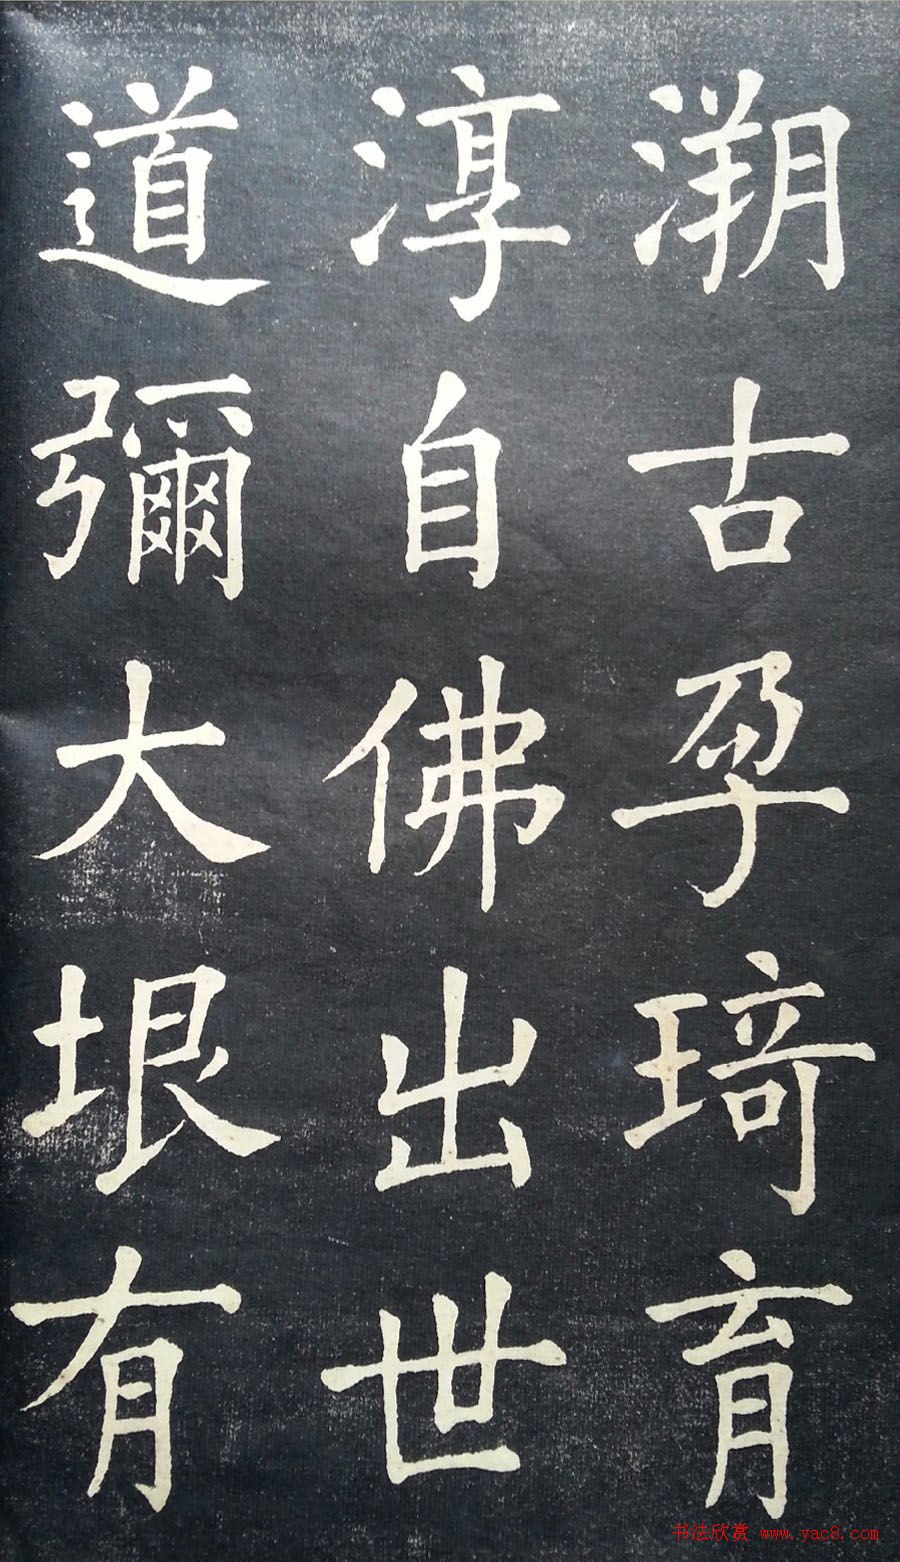 溯古孕琦育
淳自佛出世
道彌大垠有
书法欣赏 www.yac8.com